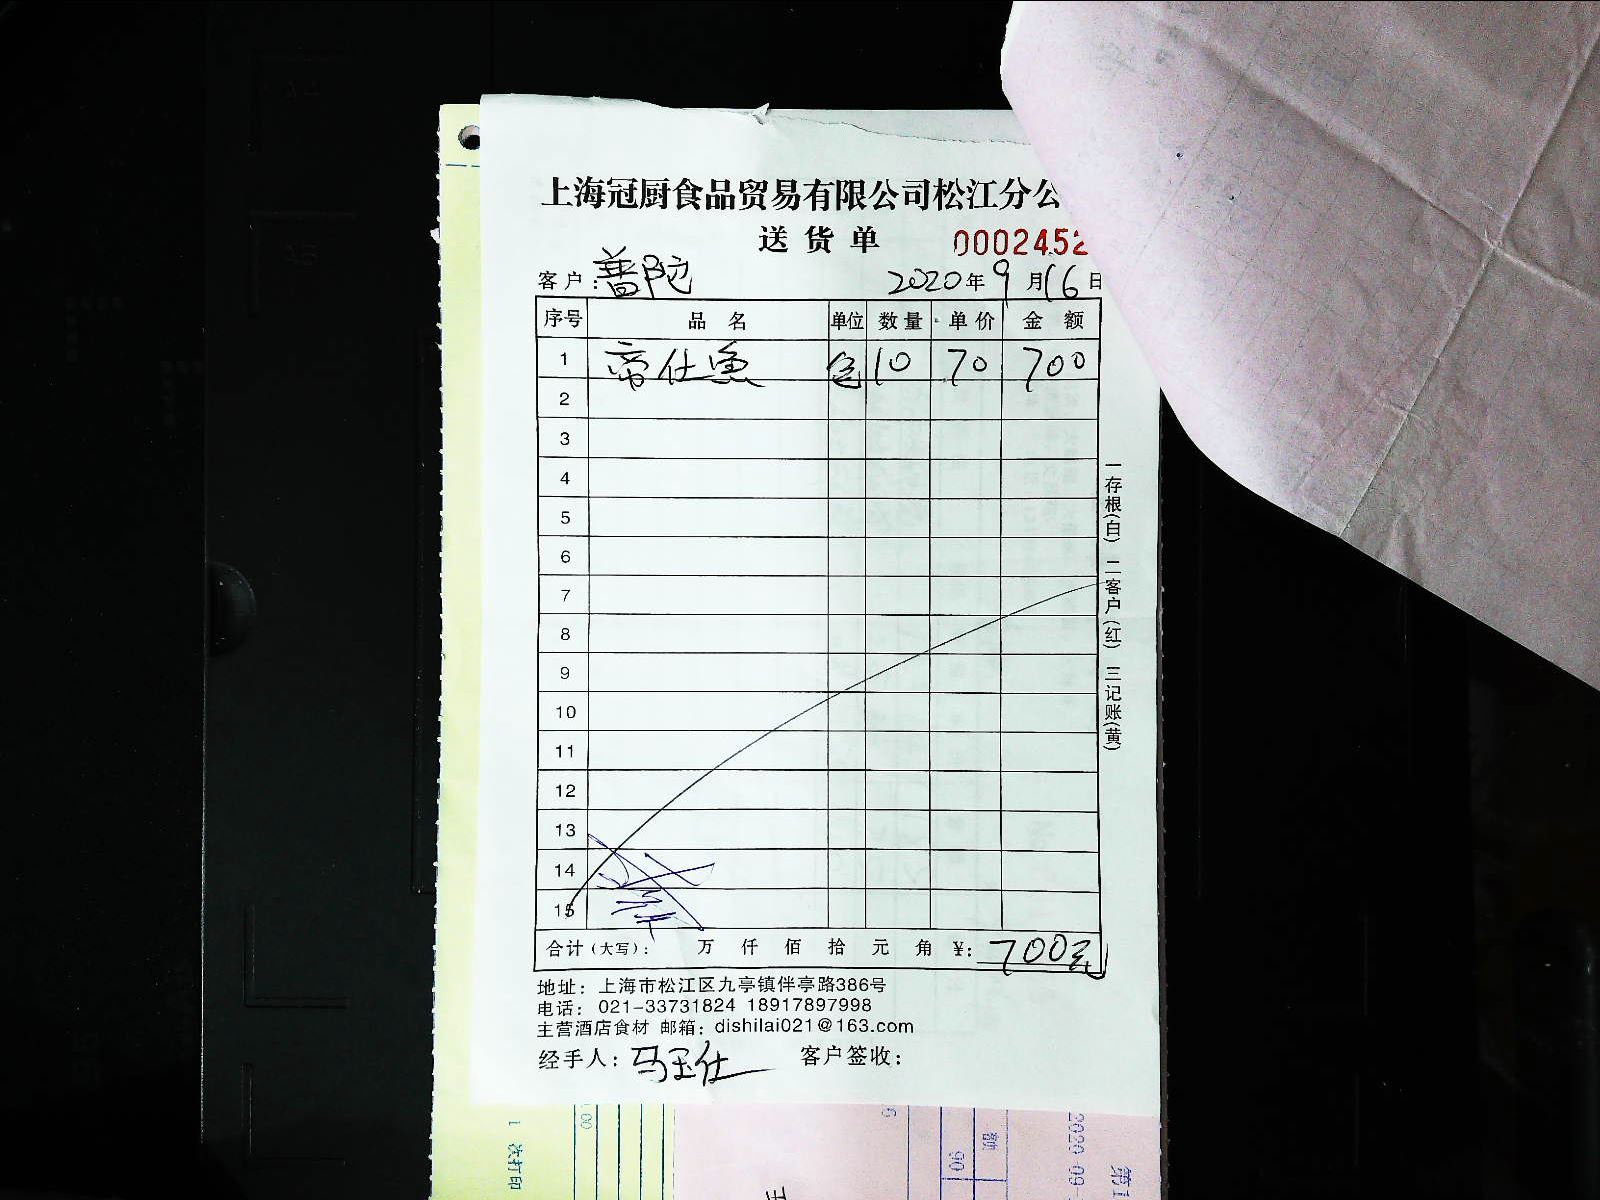 上海冠厨食品贸易有限公司松江分公
送货单 0002452
客户:普陀 2020年9月16日
序号 品名 单位 数量 单价 金额
1 帝仕鱼 包 10 70 700
2
3
4
5
6
7
8
9
10
11
12
13
14
15
合计(大写): 万 仟 佰 拾 元 角 ¥: 700元
地址: 上海市松江区九亭镇伴亭路386号
电话: 021-33731824 18917897998
主营酒店食材 邮箱: dishilai021@163.com
经手人: 马玉仕 客户签收:
一存根(白) 二客户(红) 三记账(黄)
1 次打印
.00
6
额
90
2020-09-
第1